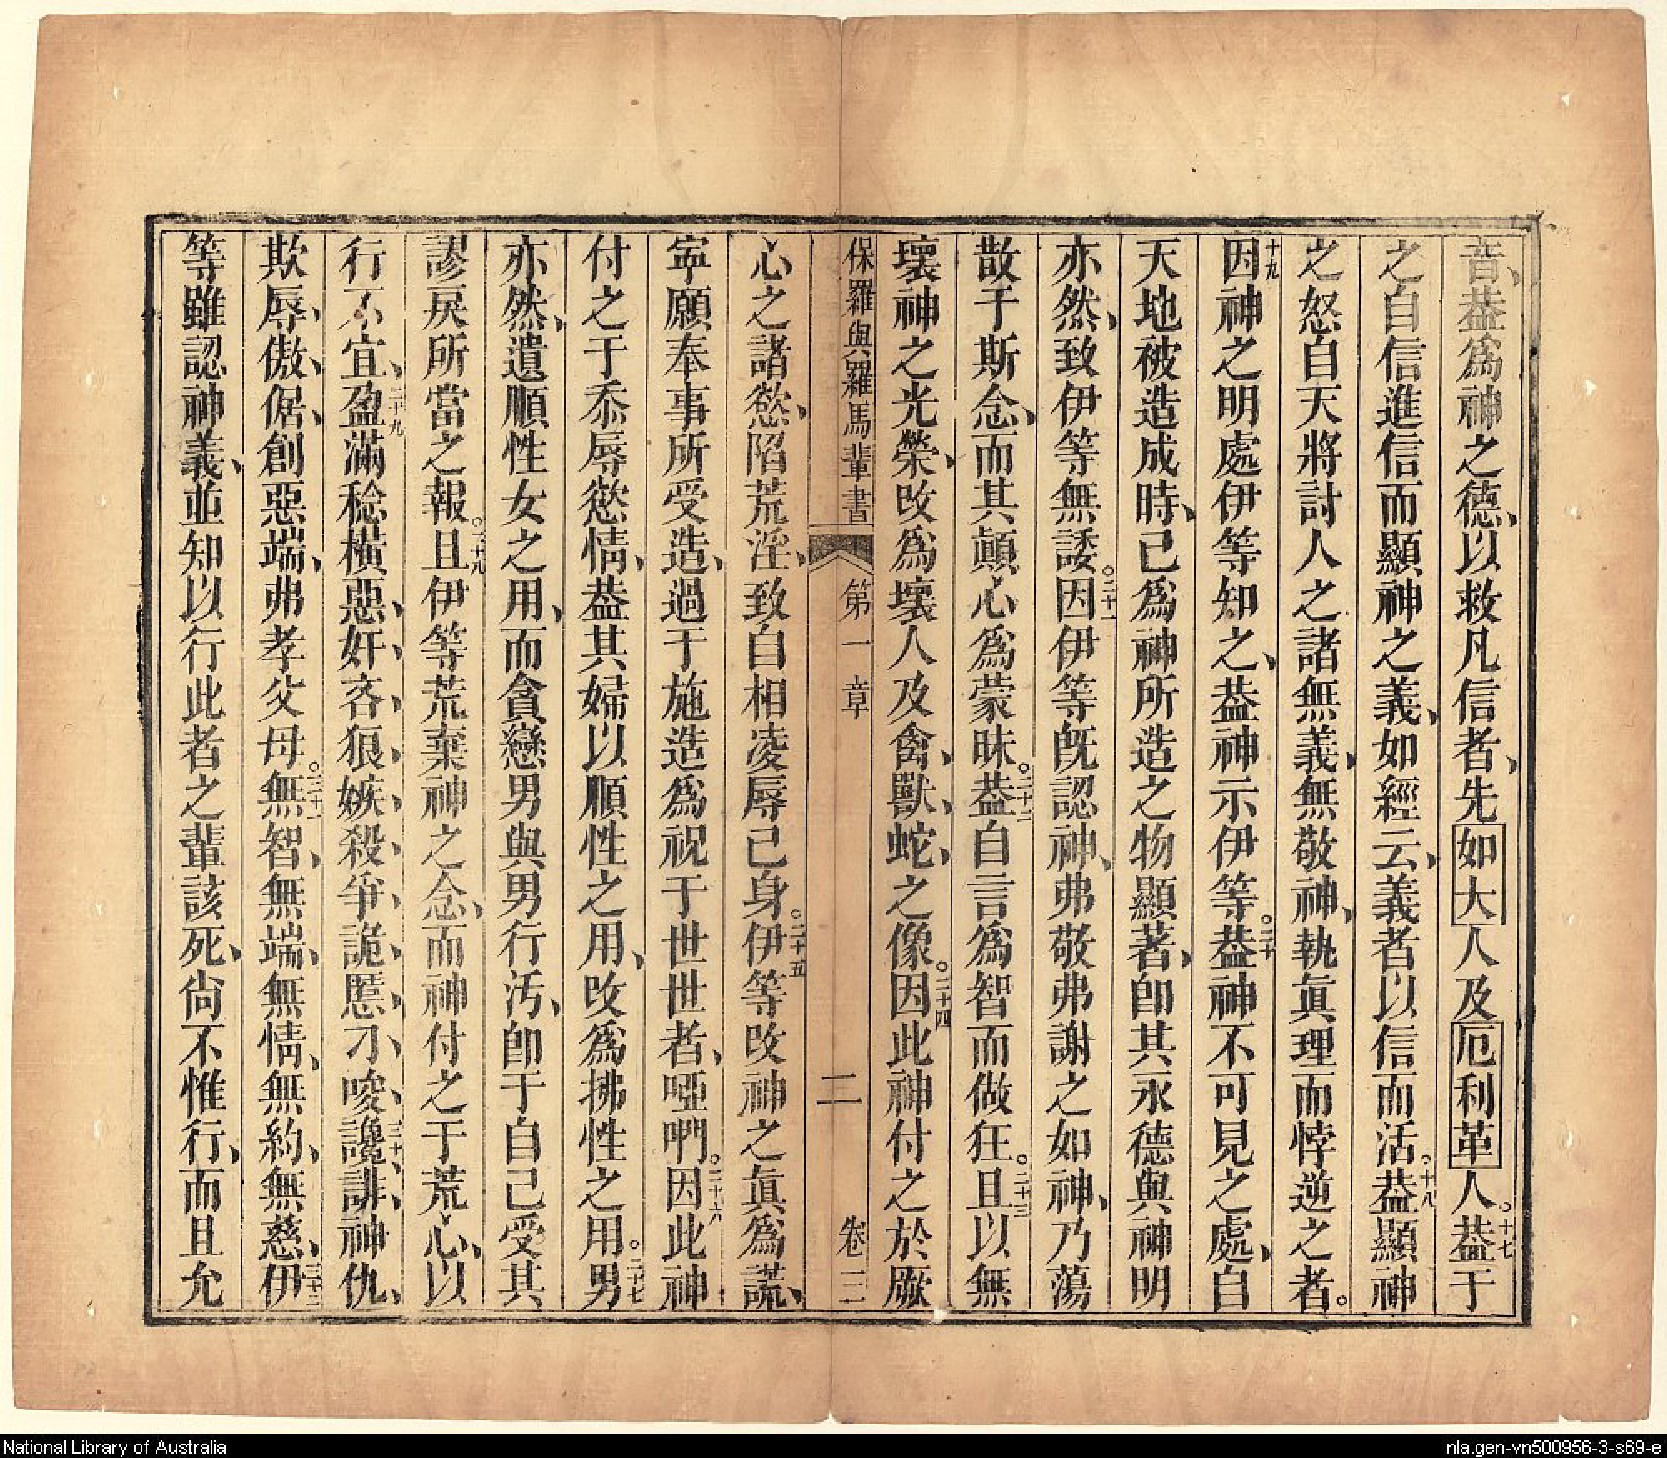 音、葢爲神之德、以救凡信者、先如大人及厄利革人。十七葢于
之自信進信而顯神之義、如經云、義者以信而活。十八葢顯神
之怒自天將討人之諸無義、無敬神、執眞理而悖逆之者。
十九因神之明處伊等知之、葢神示伊等。二十葢神不可見之處、自
天地被造成時、已爲神所造之物顯著、卽其永德與神明
亦然、致伊等無諉。二十一因伊等旣認神、弗敬弗謝之如神、乃蕩
散于斯念、而其顛心爲蒙昧。二十二葢自言爲智而做狂。二十三且以無
壞神之光榮、攺爲壞人及禽、獸、蛇、之像。二十四因此神付之於厥
保羅與羅馬輩書 第一章 二 卷三
心之諸慾、陷荒淫、致自相凌辱己身。二十五伊等攺神之眞爲謊、
寕願奉事所受造、過于施造爲祝于世世者、啞們。二十六因此神
付之于忝辱慾情、葢其婦以順性之用、攺爲拂性之用。二十七男
亦然、遺順性女之用、而貪戀男與男行汚、卽于自己受其
謬戾所當之報。二十八且伊等荒棄神之念、而神付之于荒心、以
行不宜、二十九盈滿稔橫惡、奸、吝、狠、嫉、殺、爭、詭、慝、刁唆、三十讒、誹、神仇、
欺辱、傲、倨、創惡端、弗孝父母。三十一無智、無端、無情、無約、無慈、三十二伊
等雖認神義、並知以行此者之輩該死、尙不惟行、而且允